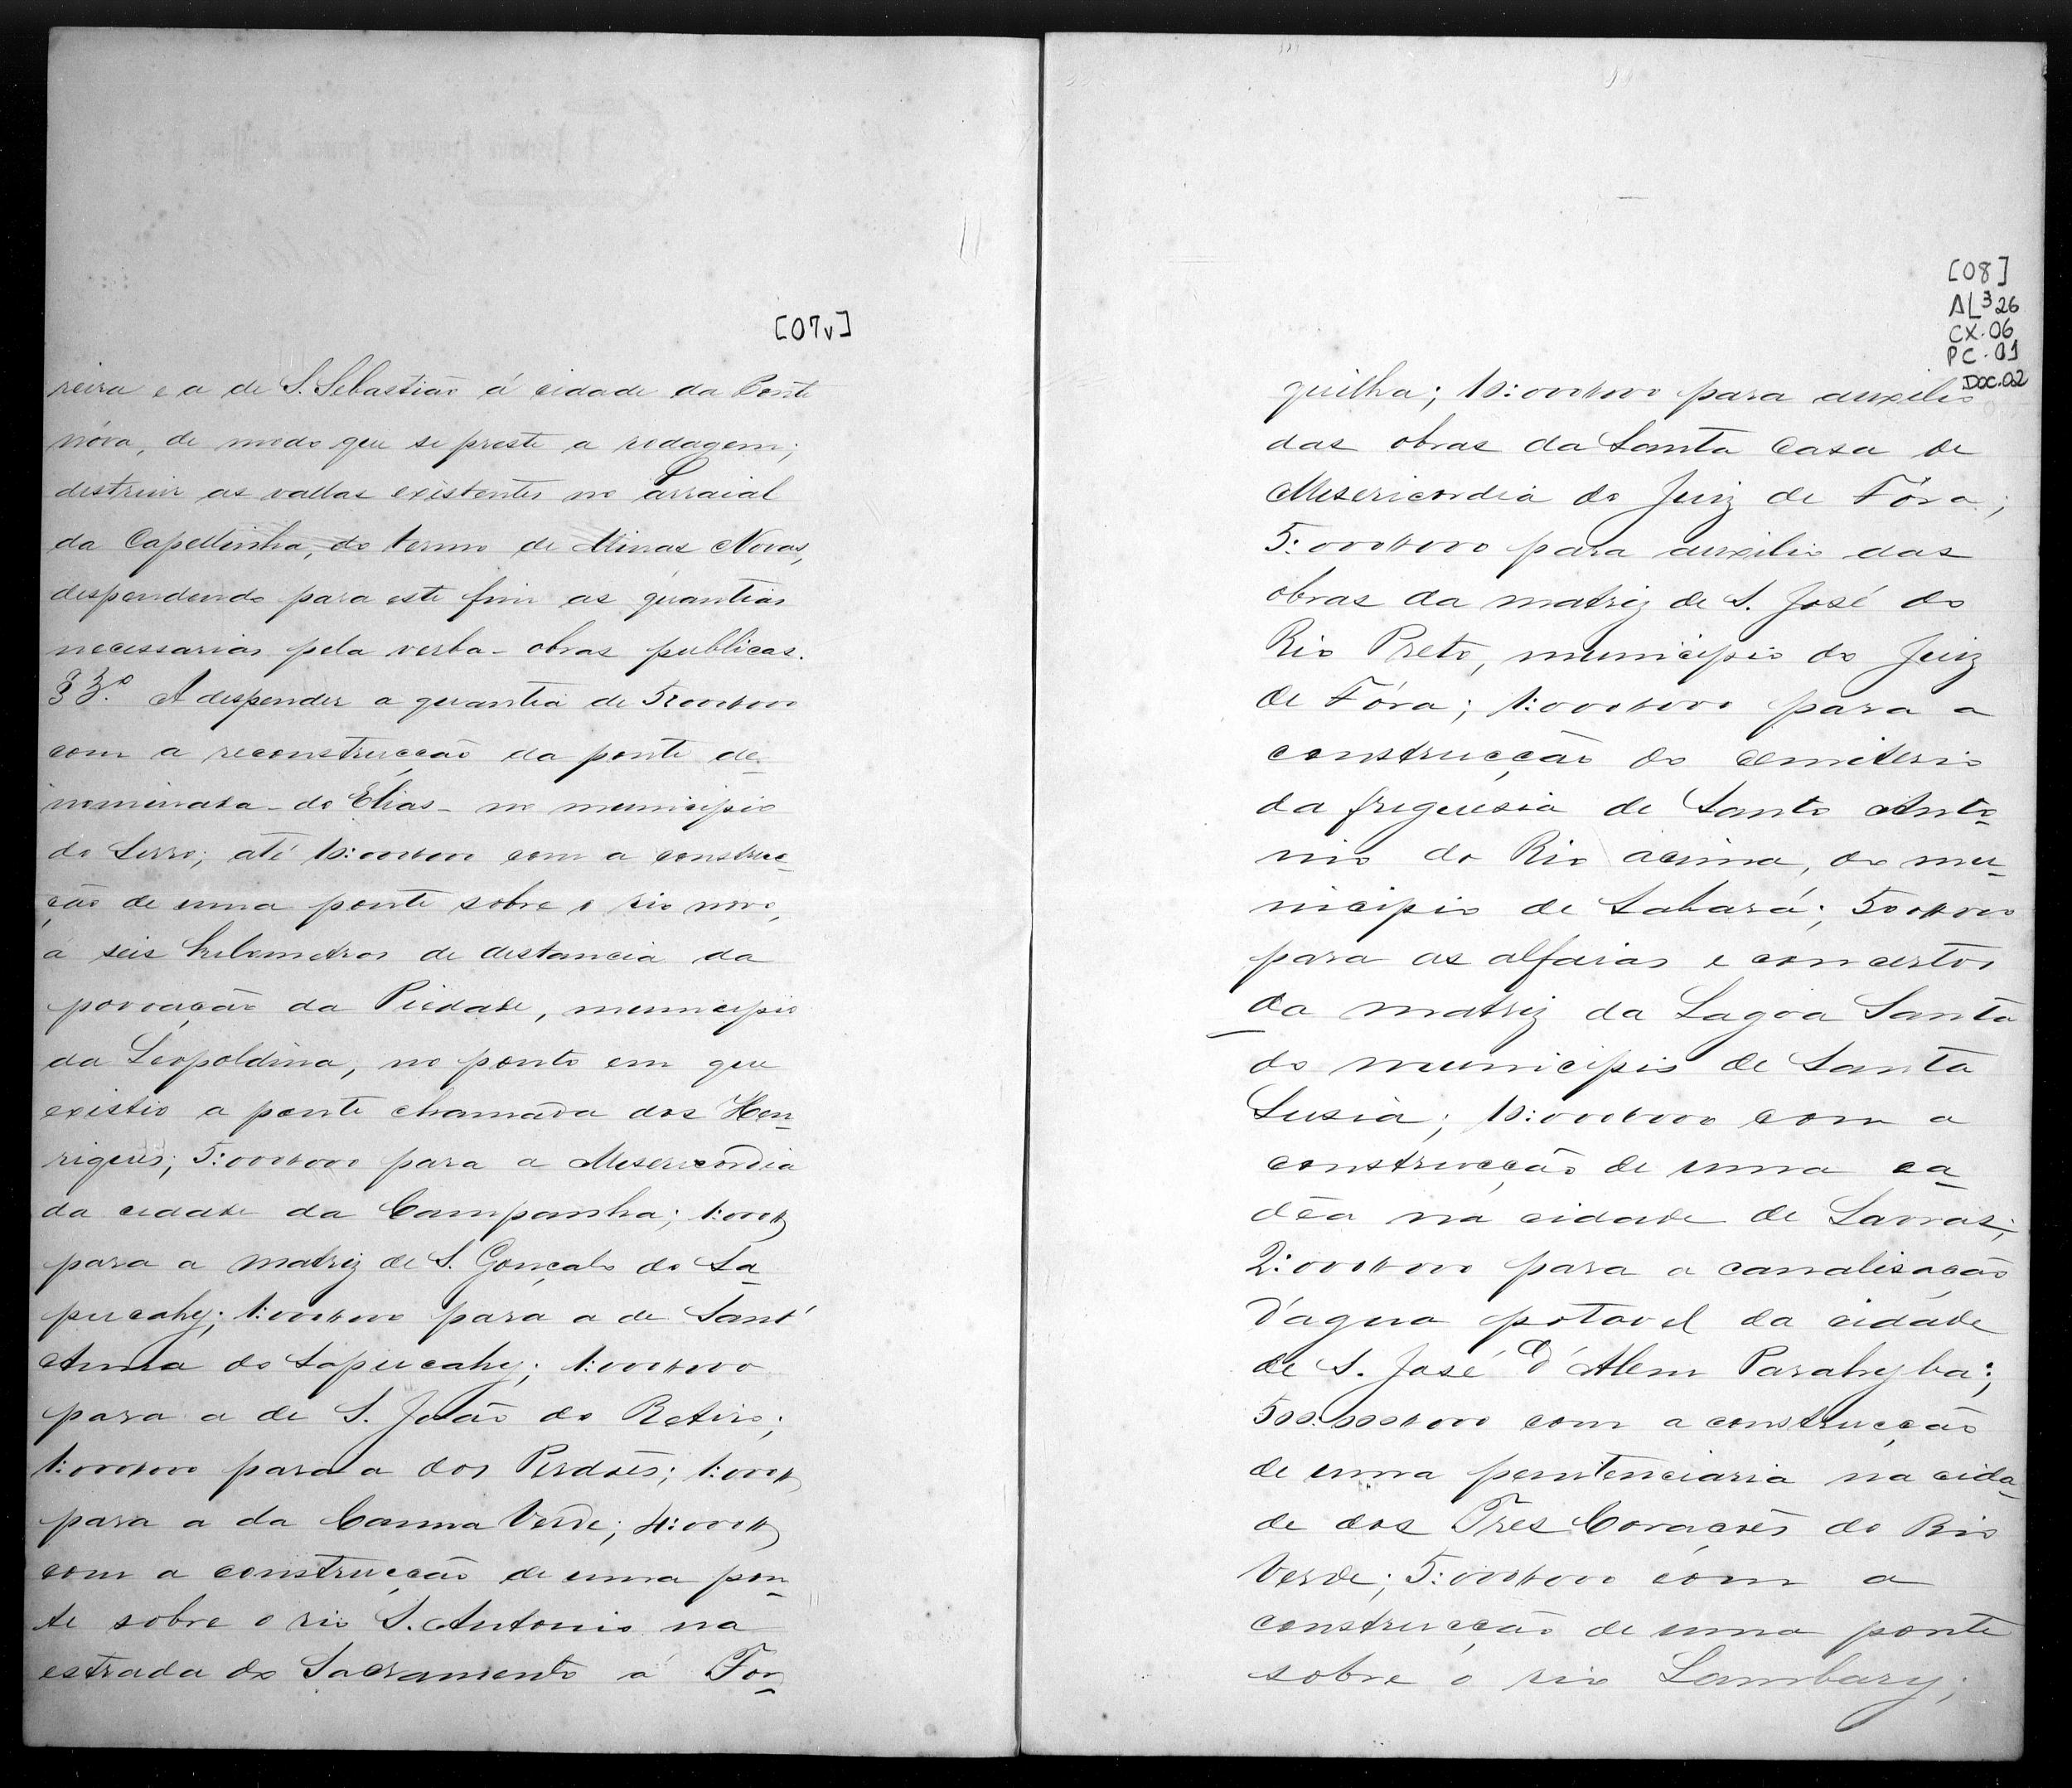 [07v]
reira e a de S. Sebastião á cidade da Ponte
nóva, de modo que se preste a rodagem;
destruir as vallas existentes no arraial
da Capellinha, do termo de Minas Novas,
despendendo para este fim as quantias
necessarias pela verba - obras publicas.
§ 3.º A despender a quantia de 5:000$000
com a reconstrucção da ponte de-
nominada - do Elias - no municipio
do Serro; até 10:000$000 com a construc-
ção de uma ponte sobre o rio novo,
a seis kilometros de distancia da
povoação da Piedade, municipio
da Leopoldina, no ponto em que
existio a ponte chamada dos Hen-
riques; 5:000$000 para a Misericordia
da cidade da Campanha; 1:000$
para a matriz de S. Gonçalo do Sa-
pucahy; 1:000$000 para a de Sant'
Anna do Sapucahy; 1:000$000
para a de S. João do Retiro;
1:000$000 para a dos Perdões; 1:000$
para a da Canna Verde; 4:000$
com a construcção de uma pon-
te sobre o rio S. Antonio na
estrada do Sacramento á For-
[08]
AL 3 26
CX. 06
PC. 01
DOC. 02
quilha; 10:000$000 para auxilio
das obras da Santa Casa de
Misericordia do Juiz de Fóra;
5:000$000 para auxilio das
obras da matriz de S. José do
Rio Preto, municipio do Juiz
de Fóra; 1:000$000 para a
construcção do cemiterio
da freguesia de Santo Anto-
nio do Rio acima, do mu-
nicipio de Sabará; 500$000
para as alfaias e concertos
da matriz da Lagoa Santa
do municipio de Santa
Lusia; 10:000$000 com a
construcção de uma ca-
dêa na cidade de Lavras;
2:000$000 para a canalisação
d'agua potavel da cidade
de S. José d'Alem Parahyba;
500:000$000 com a construcção
de uma penitenciaria na cida-
de dos Tres Corações do Rio
Verde; 5:000$000 com a
construcção de uma ponte
sobre o rio Lambary;